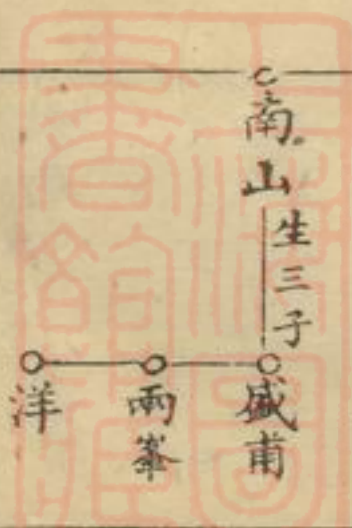 南山
生三子
盛甫
兩峯
洋